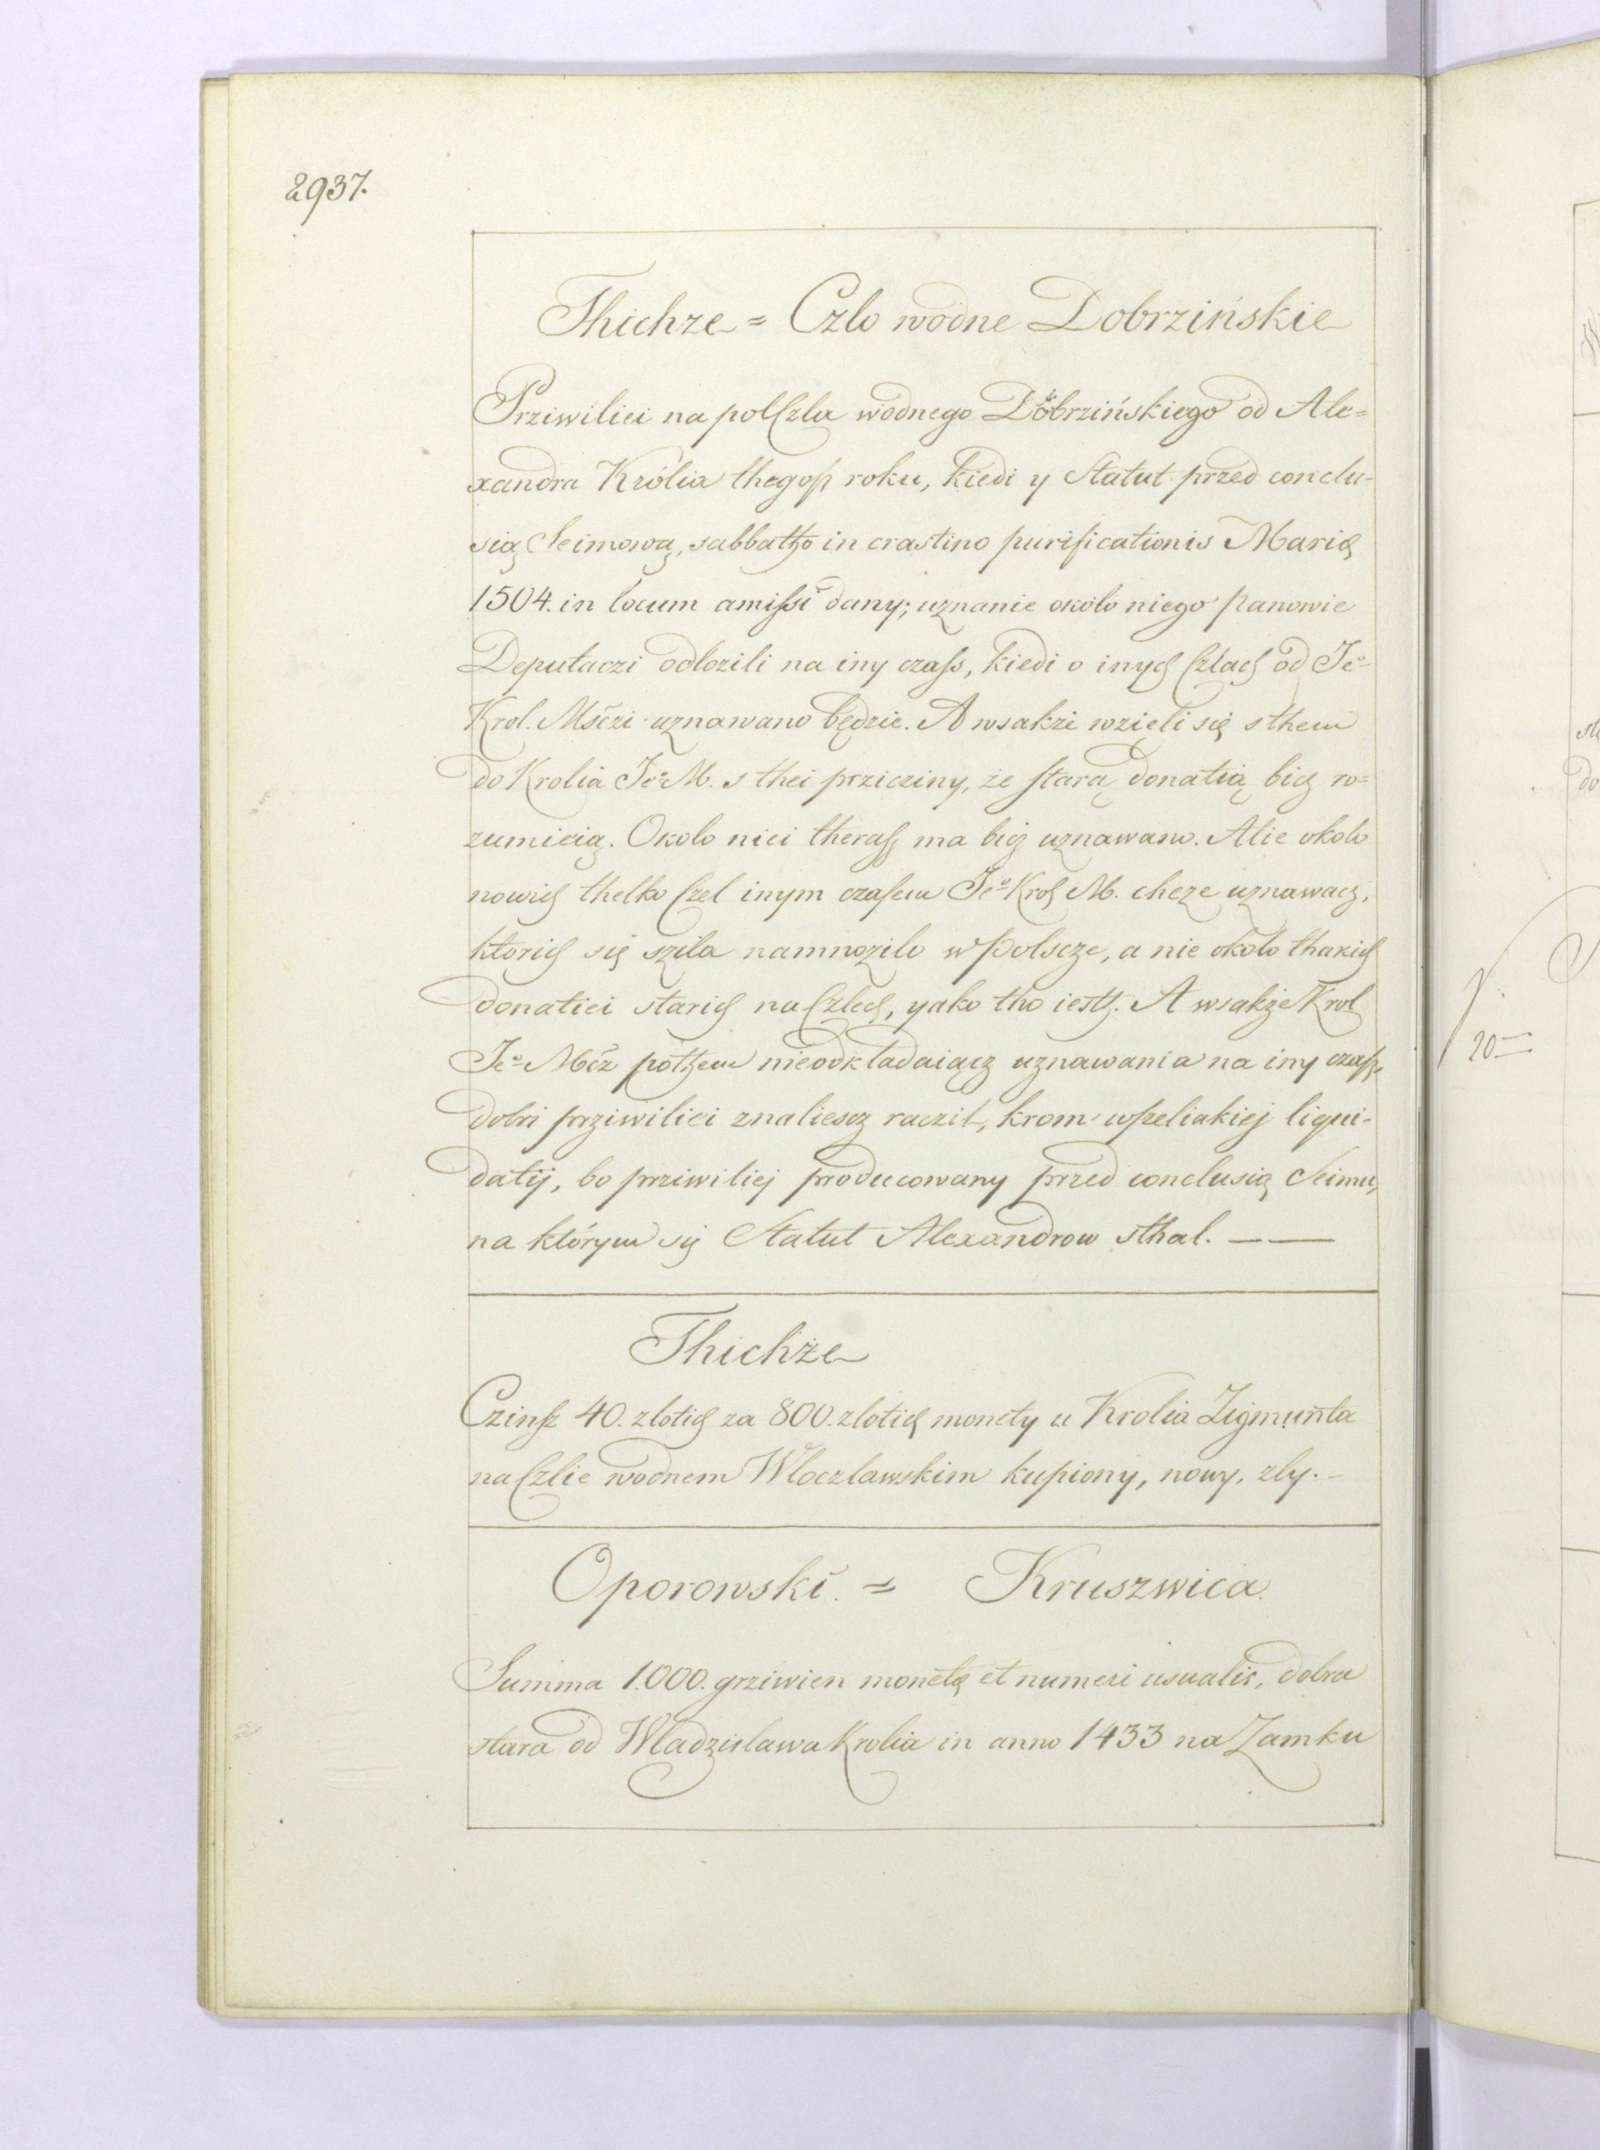 2937.
Thichze = Czlo wodne Dobrzińskie
Prziwiliei na pol Czla wodnego Dobrzińskiego od Ale=
xandra Królia thegosz roku, kiedi y Statut przed conclu-
sią Seimową, sabbatho in crastino purificationis Marię
1504. in locum amissi dany; uznanie około niego panowie
Deputaczi odlozili na iny czass, kiedi o inych Czlach od Jeº
Krol. Mśczi uznawano będzie. A wsakże wzięli się s them
do Krolia Jeº M. s thei przicziny, że starą donatią bicz ro=
zumieią. Okolo niei therasz ma bicz uznawano. Alie okolo
nowich thelko Czel inym czasem Jeº Krol M. chcze uznawacz,
ktorich się szila namnozilo w Polscze, a nie około thakich
donatiei starich na Czlech, yako tho iesth. A wsakże Krol
Jeº Mcz pothem nieodkładaiącz uznawania na iny czass,
dobri prziwiliei znaliescz raczil, krom wszeliakiej liqui-
datij, bo prziwiliej producowany przed conclusią Seimu,
na którym się Statut Alexandrow sthal. — —
Thichże
Czinsz 40. zlotich za 800. zlotich monety u Krolia Zigmunta
na Czlie wodnem Wloczlawskim kupiony, nowy, zly. –
Oporowski. = Kruszwica.
Summa 1.000. grziwien monetę et numeri usualis, dobra
stara od Wladzislawa Krolia in anno 1433 na Zamku
20